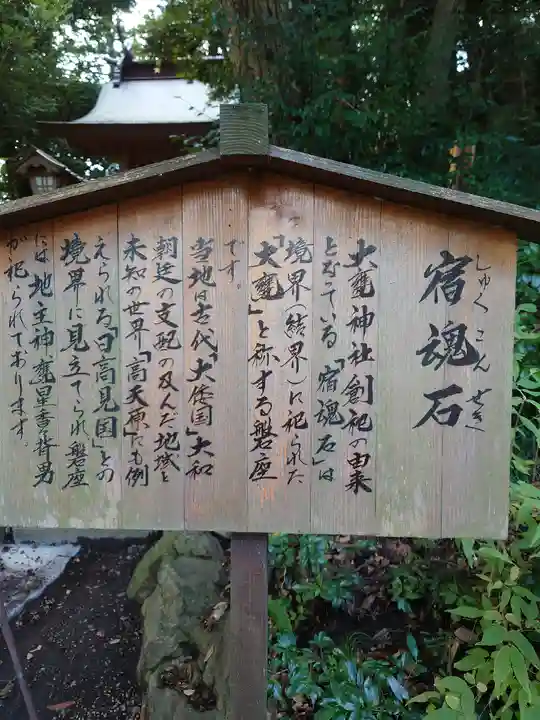 宿魂石
しゅくこんせき
大甕神社創祀の由来
となっている「宿魂石」は
境界(結界)に祀られた
「大甕」と称する磐座
です。
当地は古代「大倭国」大和
朝廷の支配の及んだ地域と
未知の世界「高天原」にも例
えられる「日高見国」との
境界に見立てられ磐座
には地主神甕星香背男
が祀られております。